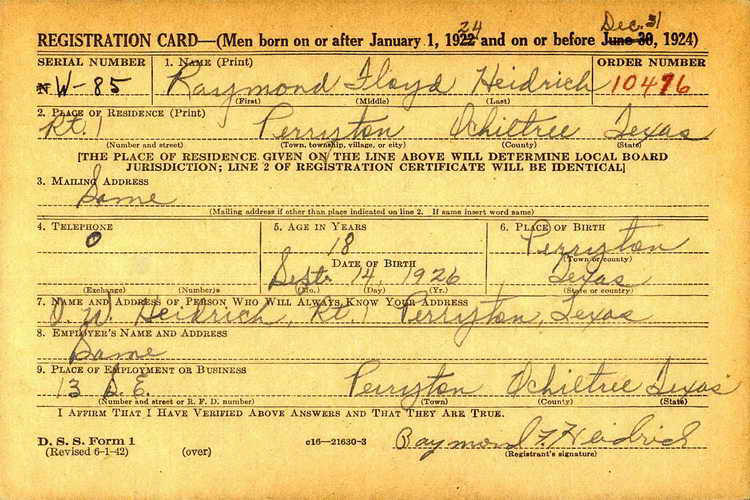 Dec. 31
24
REGISTRATION CARD—(Men born on or after January 1, 1922 and on or before June 30, 1924)
SERIAL NUMBER 1. NAME (Print) ORDER NUMBER
N W-85 Raymond Floyd Heidrich 10476
(First) (Middle) (Last)
2. PLACE OF RESIDENCE (Print)
Rt. 1 Perryton Ochiltree Texas
(Number and street) (Town, township, village, or city) (County) (State)
[THE PLACE OF RESIDENCE GIVEN ON THE LINE ABOVE WILL DETERMINE LOCAL BOARD
JURISDICTION; LINE 2 OF REGISTRATION CERTIFICATE WILL BE IDENTICAL]
3. MAILING ADDRESS
Same
(Mailing address if other than place indicated on line 2. If same insert word same)
4. TELEPHONE 5. AGE IN YEARS 6. PLACE OF BIRTH
0 18 Perryton
DATE OF BIRTH (Town or county)
Sept. 14 1926 Texas
(Exchange) (Number) (Mo.) (Day) (Yr.) (State or country)
7. NAME AND ADDRESS OF PERSON WHO WILL ALWAYS KNOW YOUR ADDRESS
O. W. Heidrich, Rt. 1 Perryton, Texas
8. EMPLOYER'S NAME AND ADDRESS
Same
9. PLACE OF EMPLOYMENT OR BUSINESS
13 S. E. Perryton Ochiltree Texas
(Number and street or R. F. D. number) (Town) (County) (State)
I AFFIRM THAT I HAVE VERIFIED ABOVE ANSWERS AND THAT THEY ARE TRUE.
D. S. S. Form 1 c16—21630-3 Raymond F Heidrich
(Revised 6-1-42) (over) (Registrant's signature)